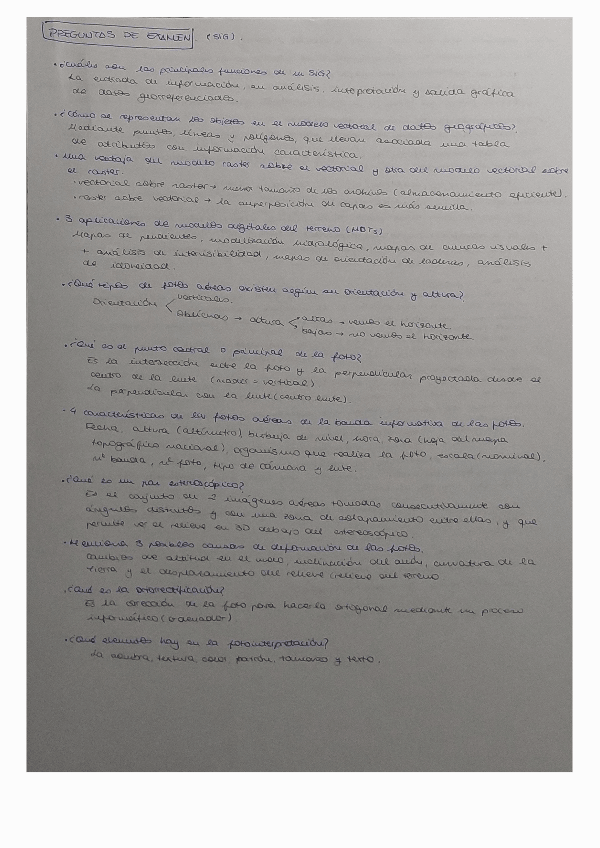 PREGUNTAS DE EXAMEN. (SIG).
• ¿Cuáles son las principales funciones de un SIG?
La entrada de información, su análisis, interpretación y salida gráfica
de datos georreferenciados.
• ¿Cómo se representan los objetos en el modelo vectorial de datos geográficos?
Mediante puntos, líneas y polígonos, que llevan asociada una tabla
de atributos con información característica.
• Una ventaja del modelo raster sobre el vectorial y otra del modelo vectorial sobre
el raster.
• vectorial sobre raster → menor tamaño de los archivos (almacenamiento eficiente).
• raster sobre vectorial → la superposición de capas es más sencilla.
• 3 aplicaciones de modelos digitales del terreno (MDTs)
Mapas de pendientes, modelización hidrológica, mapas de cuencas visuales +
+ análisis de intervisibilidad, mapas de orientación de laderas, análisis
de idoneidad.
• ¿Qué tipos de fotos aéreas existen según su orientación y altura?
Orientación < verticales.
oblicuas → altura < altas → vemos el horizonte
bajas → no vemos el horizonte
• ¿Qué es el punto central o principal de la foto?
Es la intersección entre la foto y la perpendicular proyectada desde el
centro de la lente (nadir = vertical)
La perpendicular con la lente (centro lente).
• 4 características de las fotos aéreas de la banda informativa de las fotos.
Fecha, altura (altímetro), burbuja de nivel, hora, zona (hoja del mapa
topográfico nacional), organismo que realiza la foto, escala (nominal),
nº banda, nº foto, tipo de cámara y lente.
• ¿Qué es un par estereoscópico?
Es el conjunto de 2 imágenes aéreas tomadas consecutivamente con
ángulos distintos y con una zona de solapamiento entre ellas, y que
permite ver el relieve en 3D debajo del estereoscopio.
• Menciona 3 posibles causas de deformación de las fotos.
Cambios de altitud en el vuelo, inclinación del avión, curvatura de la
Tierra y el desplazamiento del relieve (relieve del terreno
• ¿Qué es la ortorectificación?
Es la corrección de la foto para hacerla ortogonal mediante un proceso
informático (ordenador)
• ¿Qué elementos hay en la fotointerpretación?
La sombra, textura, color, patrón, tamaño y texto.